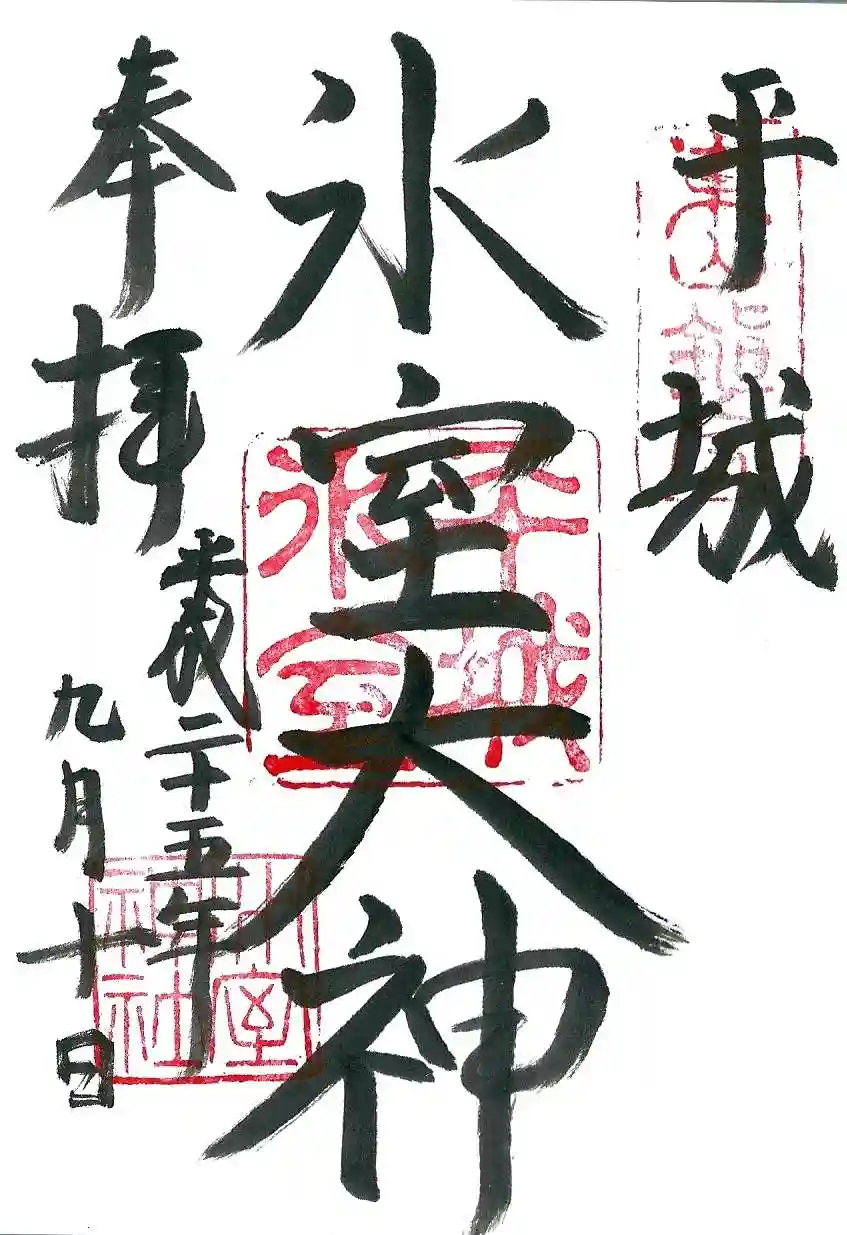 平城
氷室大神
奉拝
平成二十五年
九月十日
平城
氷室
氷室
神社